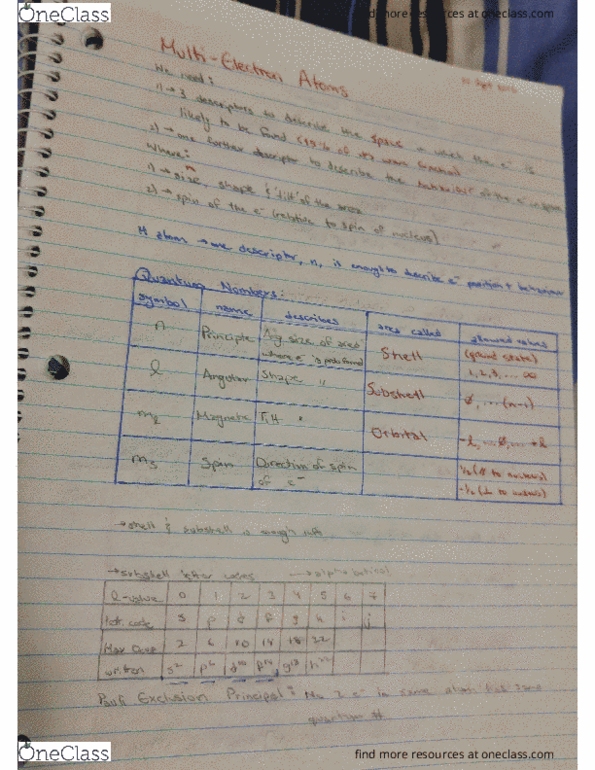 OneClass
find more resources at oneclass.com
Multi-Electron Atoms
We need:
1) → 3 descriptors to describe the space in which the e⁻ is
likely to be found (99% of it's wave function)
2) → one further descriptor to describe the behaviour of the e⁻ in space
Where:
1) → size, shape & 'tilt' of the area
2) → spin of the e⁻ (relative to spin of nucleus)
H atom → one descriptor, n, is enough to describe e⁻ position + behaviour
Quantum Numbers:
symbol name describes area called allowed values
n Principle Avg size of area where e⁻ is Shell (ground state) 1, 2, 3, ... ∞
l Angular Shape " Subshell 0, ... (n-1)
mₗ Magnetic Tilt " Orbital -l, ... 0, ... +l
mₛ Spin Direction of spin of e⁻ ½ ( to nucleus) -½ ( to nucleus)
→ shell & subshell is
→ subshell letter codes → alphabetical
l-value 0 1 2 3 4 5 6 7
code s p d f g h i j
Max 2 6 10 14 18 22
written s² p⁶ d¹⁰ f¹⁴ g¹⁸ h²²
Pauli Exclusion Principal: No 2 e⁻ in same atom has same
quantum #
OneClass
find more resources at oneclass.com